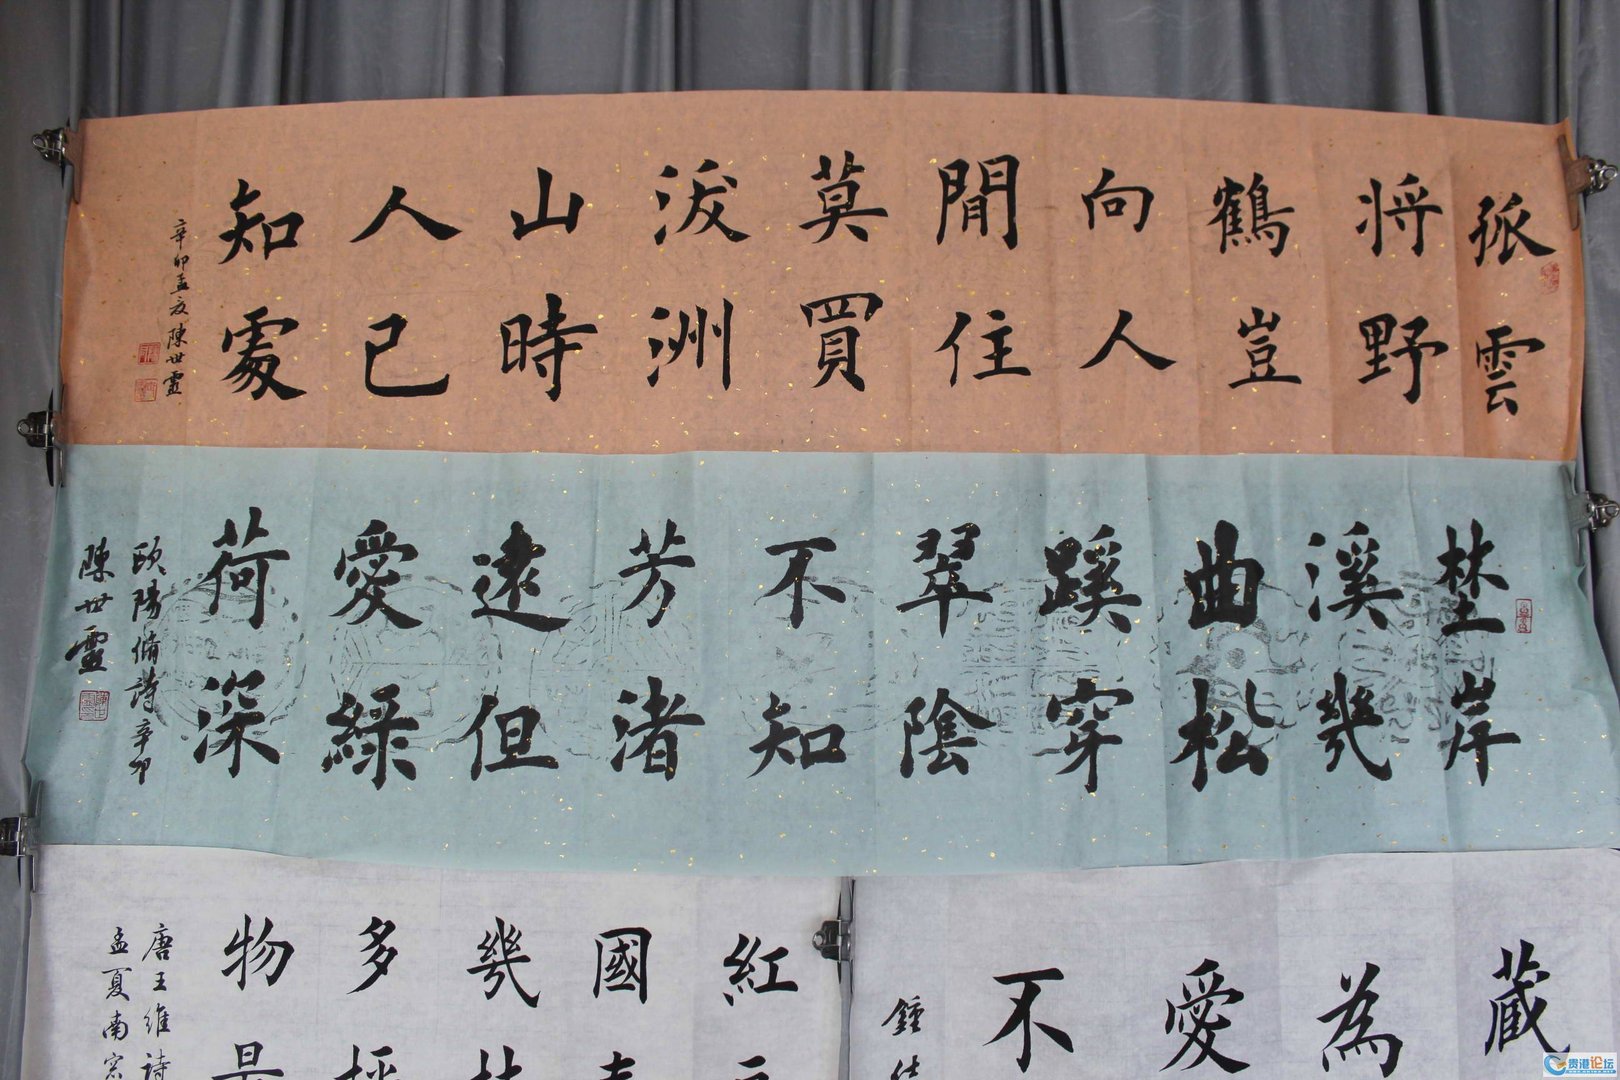 孤雲
将野
鶴豈
向人
閒住
莫買
沃洲
山時
人已
知處
辛卯孟夏陳世靈
埜岸
溪幾
曲松
蹊穿
翠陰
不知
芳渚
遠但
愛綠
荷深
歐陽脩詩辛卯
陳世靈
藏
為
愛
不
鍾
紅
國
幾
多
物
唐王維詩
孟夏南窓
贵港论坛